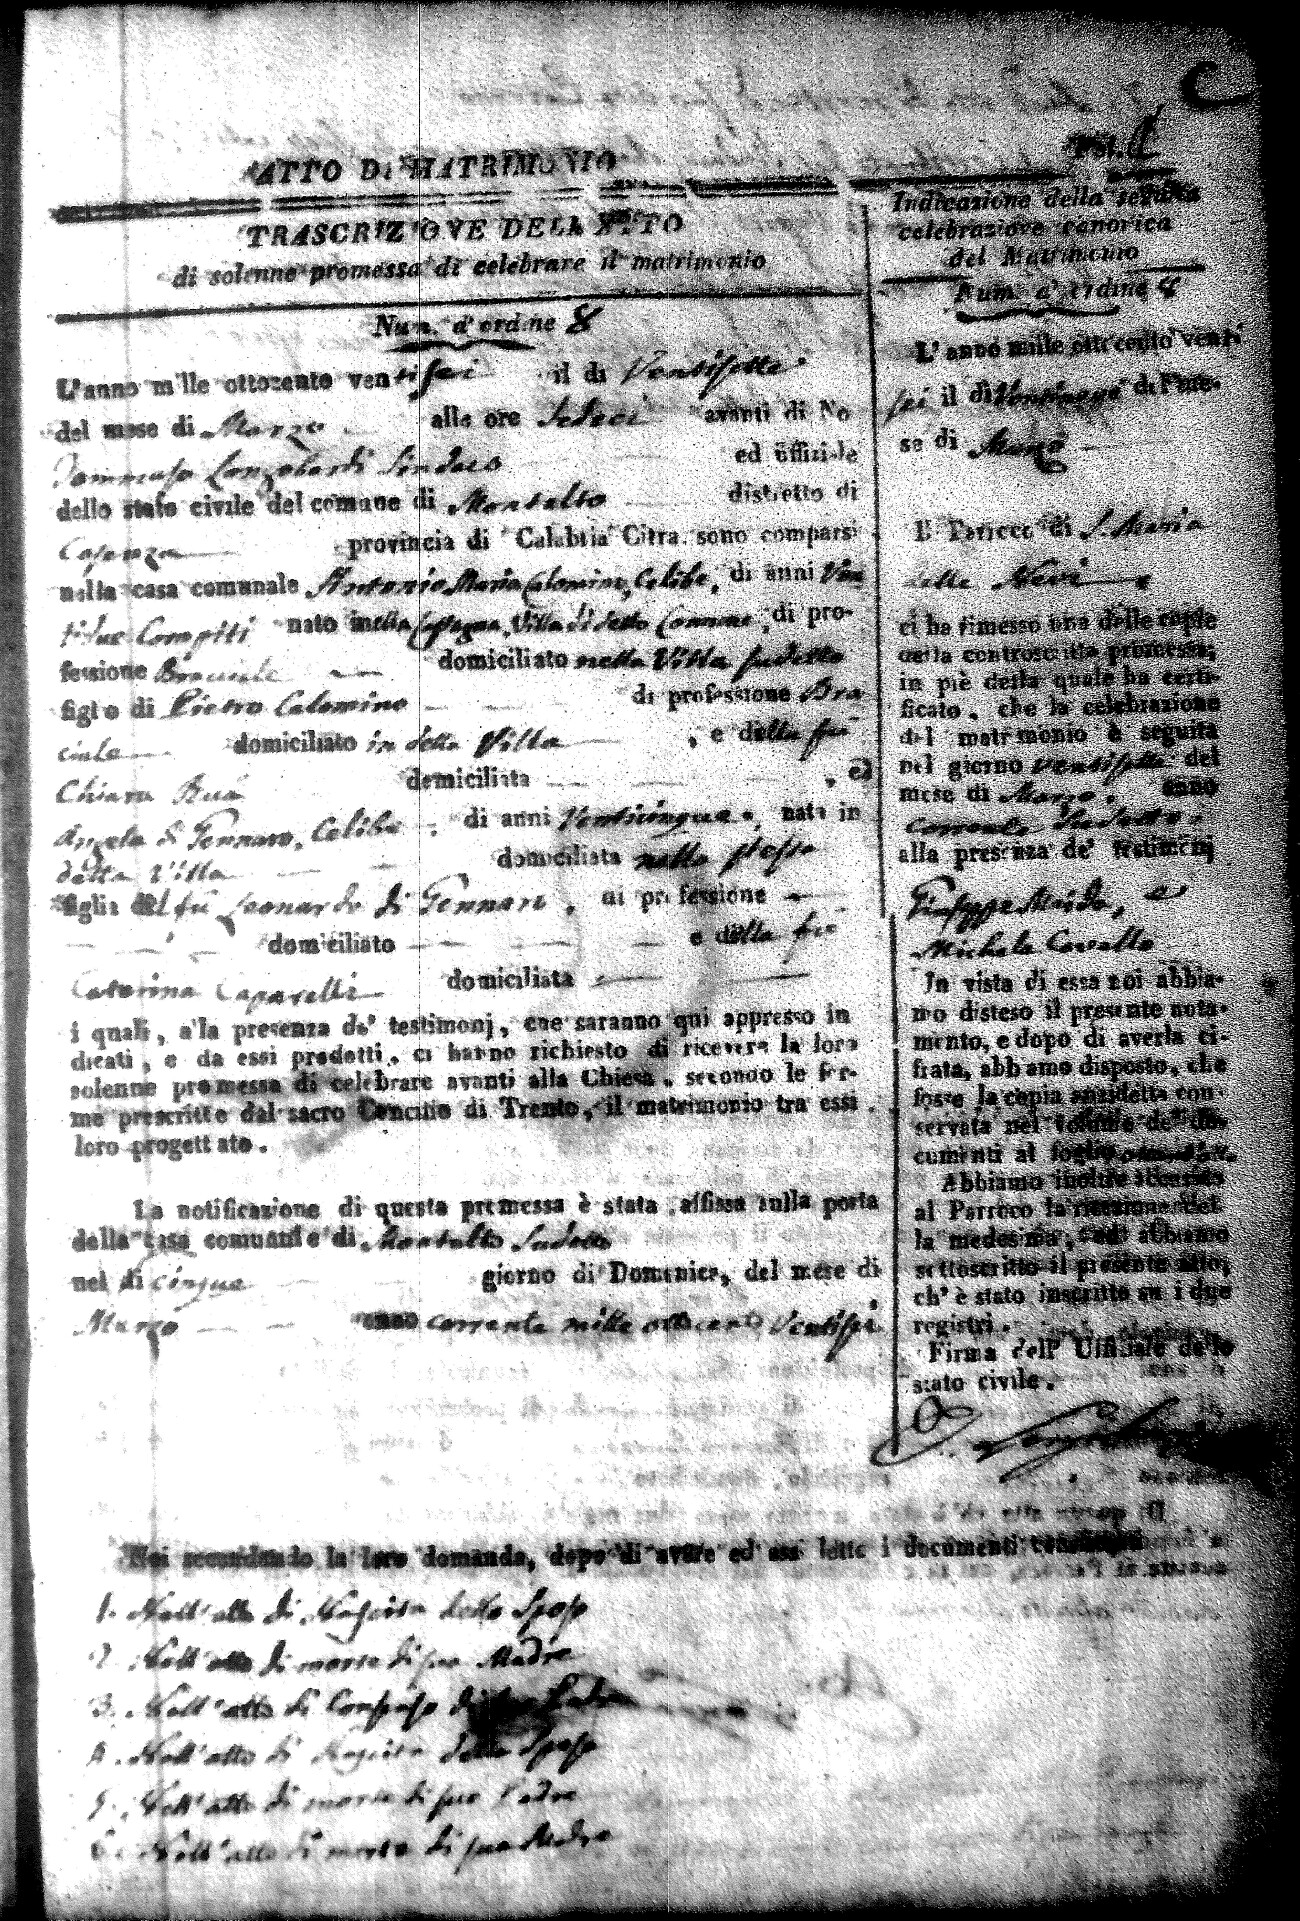 C
ATTO DI MATRIMONIO
TRASCRIZIONE DELL'ATTO
di solenne promessa di celebrare il matrimonio
Num. d'ordine 8
L'anno mille ottocento ventisei il di Ventisette
del mese di Marzo alle ore Sedeci avanti di No
Tommaso Longobardi Sindaco ed uffiziale
dello stato civile del comune di Montalto distretto di
Cosenza provincia di Calabria Citra sono comparsi
nella casa comunale Antonio Maria Calomino, Celibe, di anni Ven
tidue Compiti nato in Villa di detto Comune, di pro-
fessione Braciale domiciliato nella Villa sudetta
figlio di Pietro Calomino di professione Bra
ciale domiciliato in detta Villa, e della fu
Chiara Buà domiciliata, ed
Angela di Gennaro, Celibe, di anni Venticinque, nata in
detta Villa domiciliata nella stessa
figlia del fu Leonardo di Gennaro, di professione
domiciliato e della fu
Catarina Caparelli domiciliata
i quali, alla presenza de' testimonj, che saranno qui appresso in
dicati, e da essi prodotti, ci hanno richiesto di ricevere la loro
solenne promessa di celebrare avanti alla Chiesa, secondo le for-
me prescritte dal sacro Concilio di Trento, il matrimonio tra essi
loro progettato.
La notificazione di questa promessa è stata affissa sulla porta
della casa comunale di Montalto Sudetto
nel di cinque giorno di Domenica, del mese di
Marzo anno corrente mille ottocento Ventisei
Noi secondando la loro domanda, dopo di avere ed essi lette i documenti
1. Nell'atto di Nascita dello Sposo
2. Nell'atto di morte di sua Madre
3. Nell'atto di Consenso di suo Padre
4. Nell'atto di Nascita della Sposa
5. Nell'atto di morte di suo Padre
6. Nell'atto di morte di sua Madre
Indicazione della seguita
celebrazione canonica
del Matrimonio
Num. d'ordine 8
L'anno mille ottocento venti
sei il di di me-
se di Marzo
Il Parroco di S. Maria
della Neve
ci ha rimesso una delle copie
della controscritta promessa;
in piè della quale ha certi-
ficato, che la celebrazione
del matrimonio è seguita
nel giorno ventisette del
mese di Marzo, anno
corrente sudetto,
alla presenza de' testimonj
Giuseppe Maida, e
Michele Covello
In vista di essa noi abbia-
mo disteso il presente nota-
mento, e dopo di averla ci-
frata, abbiamo disposto, che
fosse la copia anzidetta con-
servata nel volume de' do-
cumenti al foglio
Abbiamo inoltre accusato
al Parroco la ricezione del-
la medesima, ed abbiamo
sottoscritto il presente atto,
ch' è stato inscritto su i due
registri.
Firma dell' Uffiziale dello
stato civile.